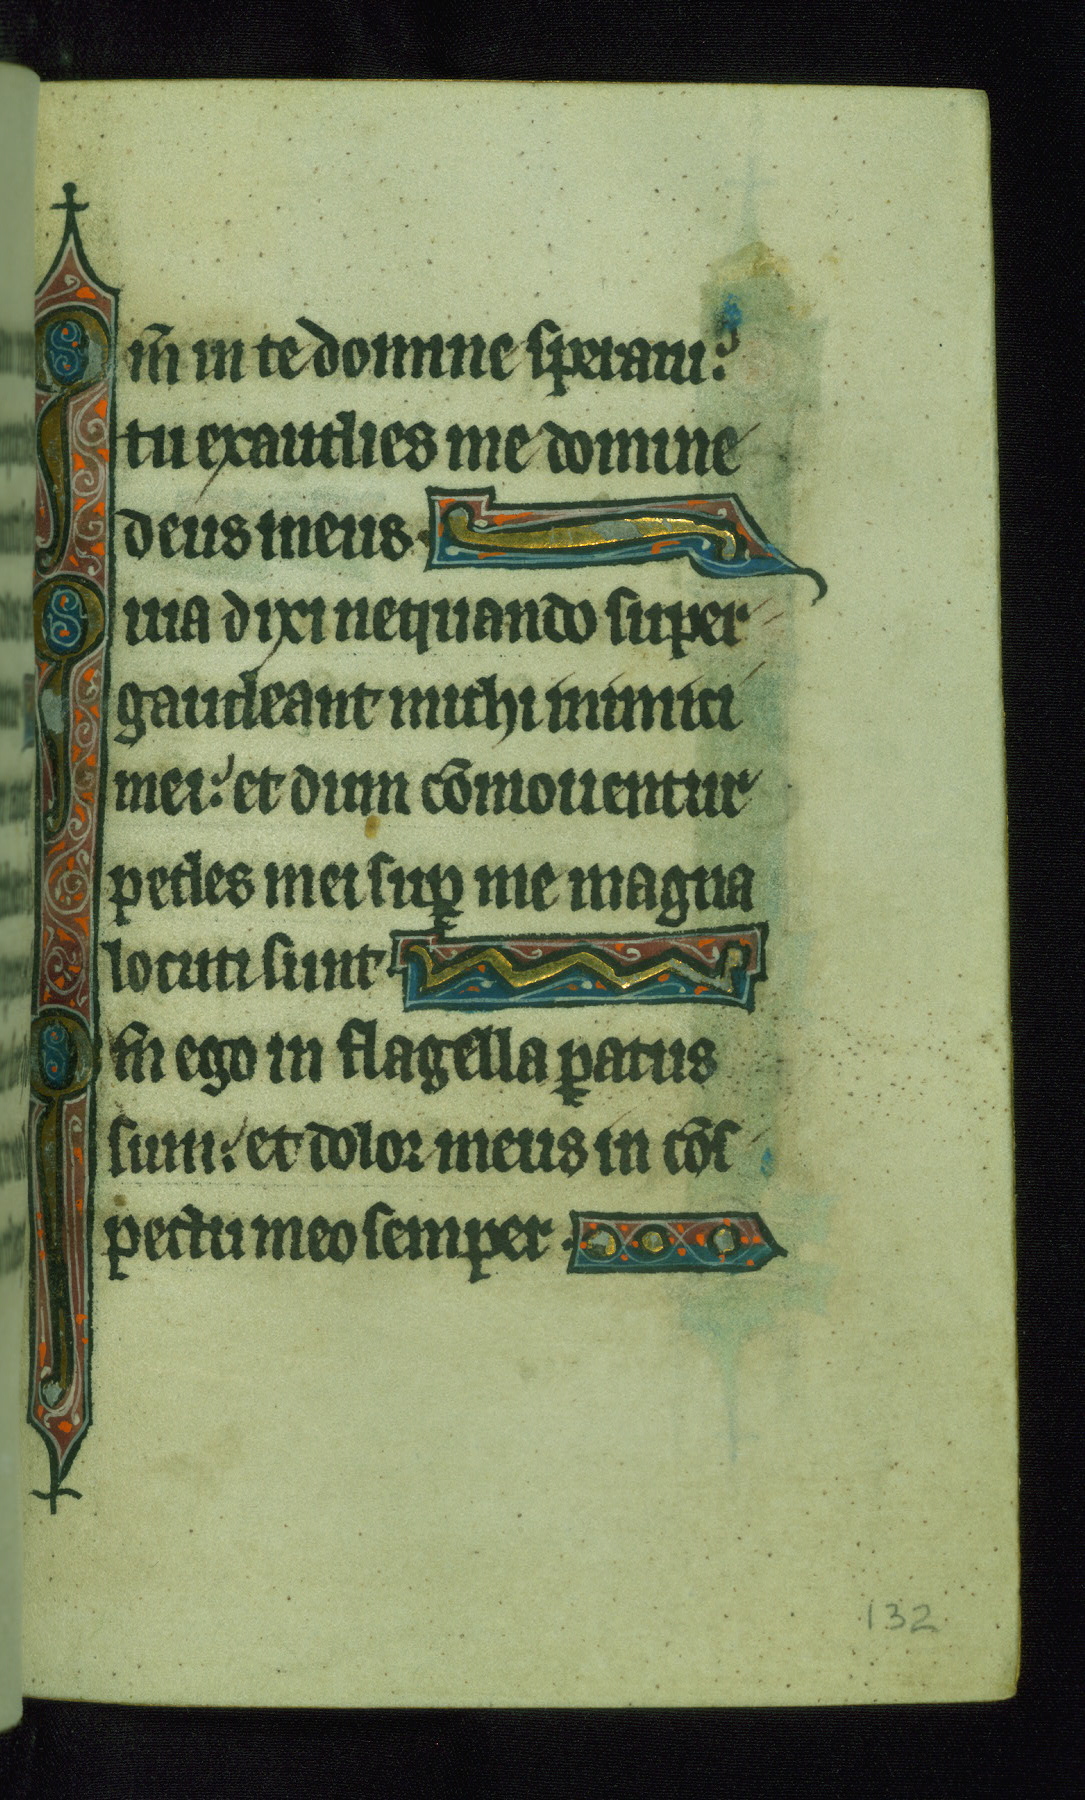 Qm̄ in te domine speraui:
tu exaudies me domine
deus meus.
Quia dixi nequando super
gaudeant michi inimici
mei: et dum cōmouentur
pedes mei suꝑ me magna
locuti sunt
Qm̄ ego in flagella ꝑatus
sum: et dolor meus in cōs
pectu meo semper.
132